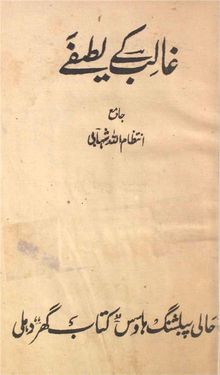 غالب کے لطیفے
جامع
انتظام اللہ شہابی
حالی پبلشنگ ہاؤس کتاب گھر دہلی